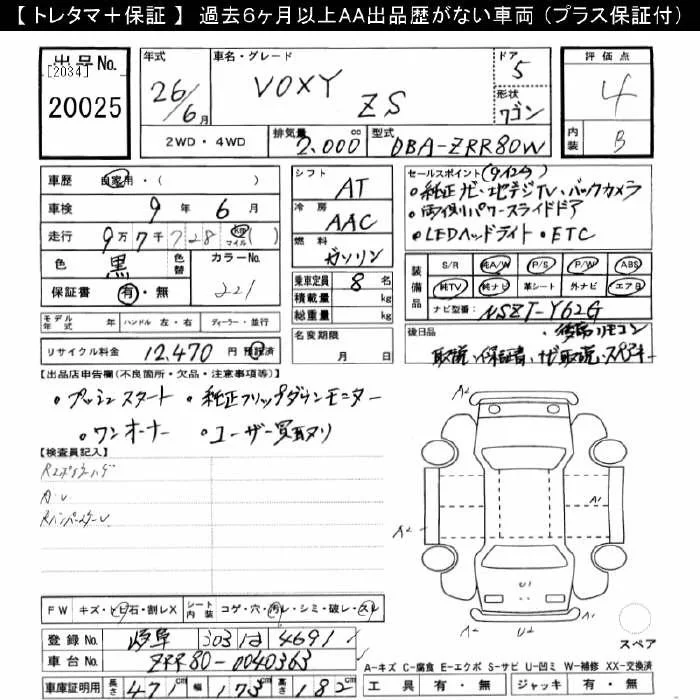 【 トレタマ＋保証 】 過去６ヶ月以上ＡＡ出品歴がない車両（プラス保証付）
出品No. [2034] 20025
年式 26/6月
車名・グレード VOXY ZS
ドア 5
形状 ワゴン
評価点 4
内装 B
2WD・4WD
排気量 2,000 cc
型式 DBA-ZRR80W
車歴 自家用・( )
車検 9年 6月
走行 9万7千728 km マイル ( )
色 黒 色替 カラーNo. 221
保証書 有・無
シフト AT
冷房 AAC
燃料 ガソリン
乗車定員 8名
積載量 kg
総重量 kg
セールスポイント(912合)
・純正ナビ・地デジTV・バックカメラ
・両側パワースライドドア
・LEDヘッドライト・ETC
装備品 S/R 純A/W P/S P/W ABS
純TV 純ナビ 革シート 外ナビ エアB
ナビ型番: NSZT-Y62G
モデル年式 年 ハンドル 左・右 ディーラー・並行
リサイクル料金 12,470 円 預託済
名変期限 月 日
後日品 ・後席リモコン
取説・保証書・ナビ取説・スペアキー
【出品店申告欄(不良箇所・欠品・注意事項等)】
・プッシュスタート ・純正フリップダウンモニター
・ワンオーナー ・ユーザー買取り
【検査員記入】
A2
A1
A2
U1
A2 U2
FW キズ・トビ石・割レX シート内装 コゲ・穴・汚レ・シミ・破レ・スレ
登録No. 岐阜 303 は 4691
車台No. ZRR80-0040363
スペア
A-キズ C-腐食 E-エクボ S-サビ U-凹ミ W-補修 XX-交換済
車庫証明用 長さ 471cm 幅 173cm 高さ 182cm
工具 有・無 ジャッキ 有・無